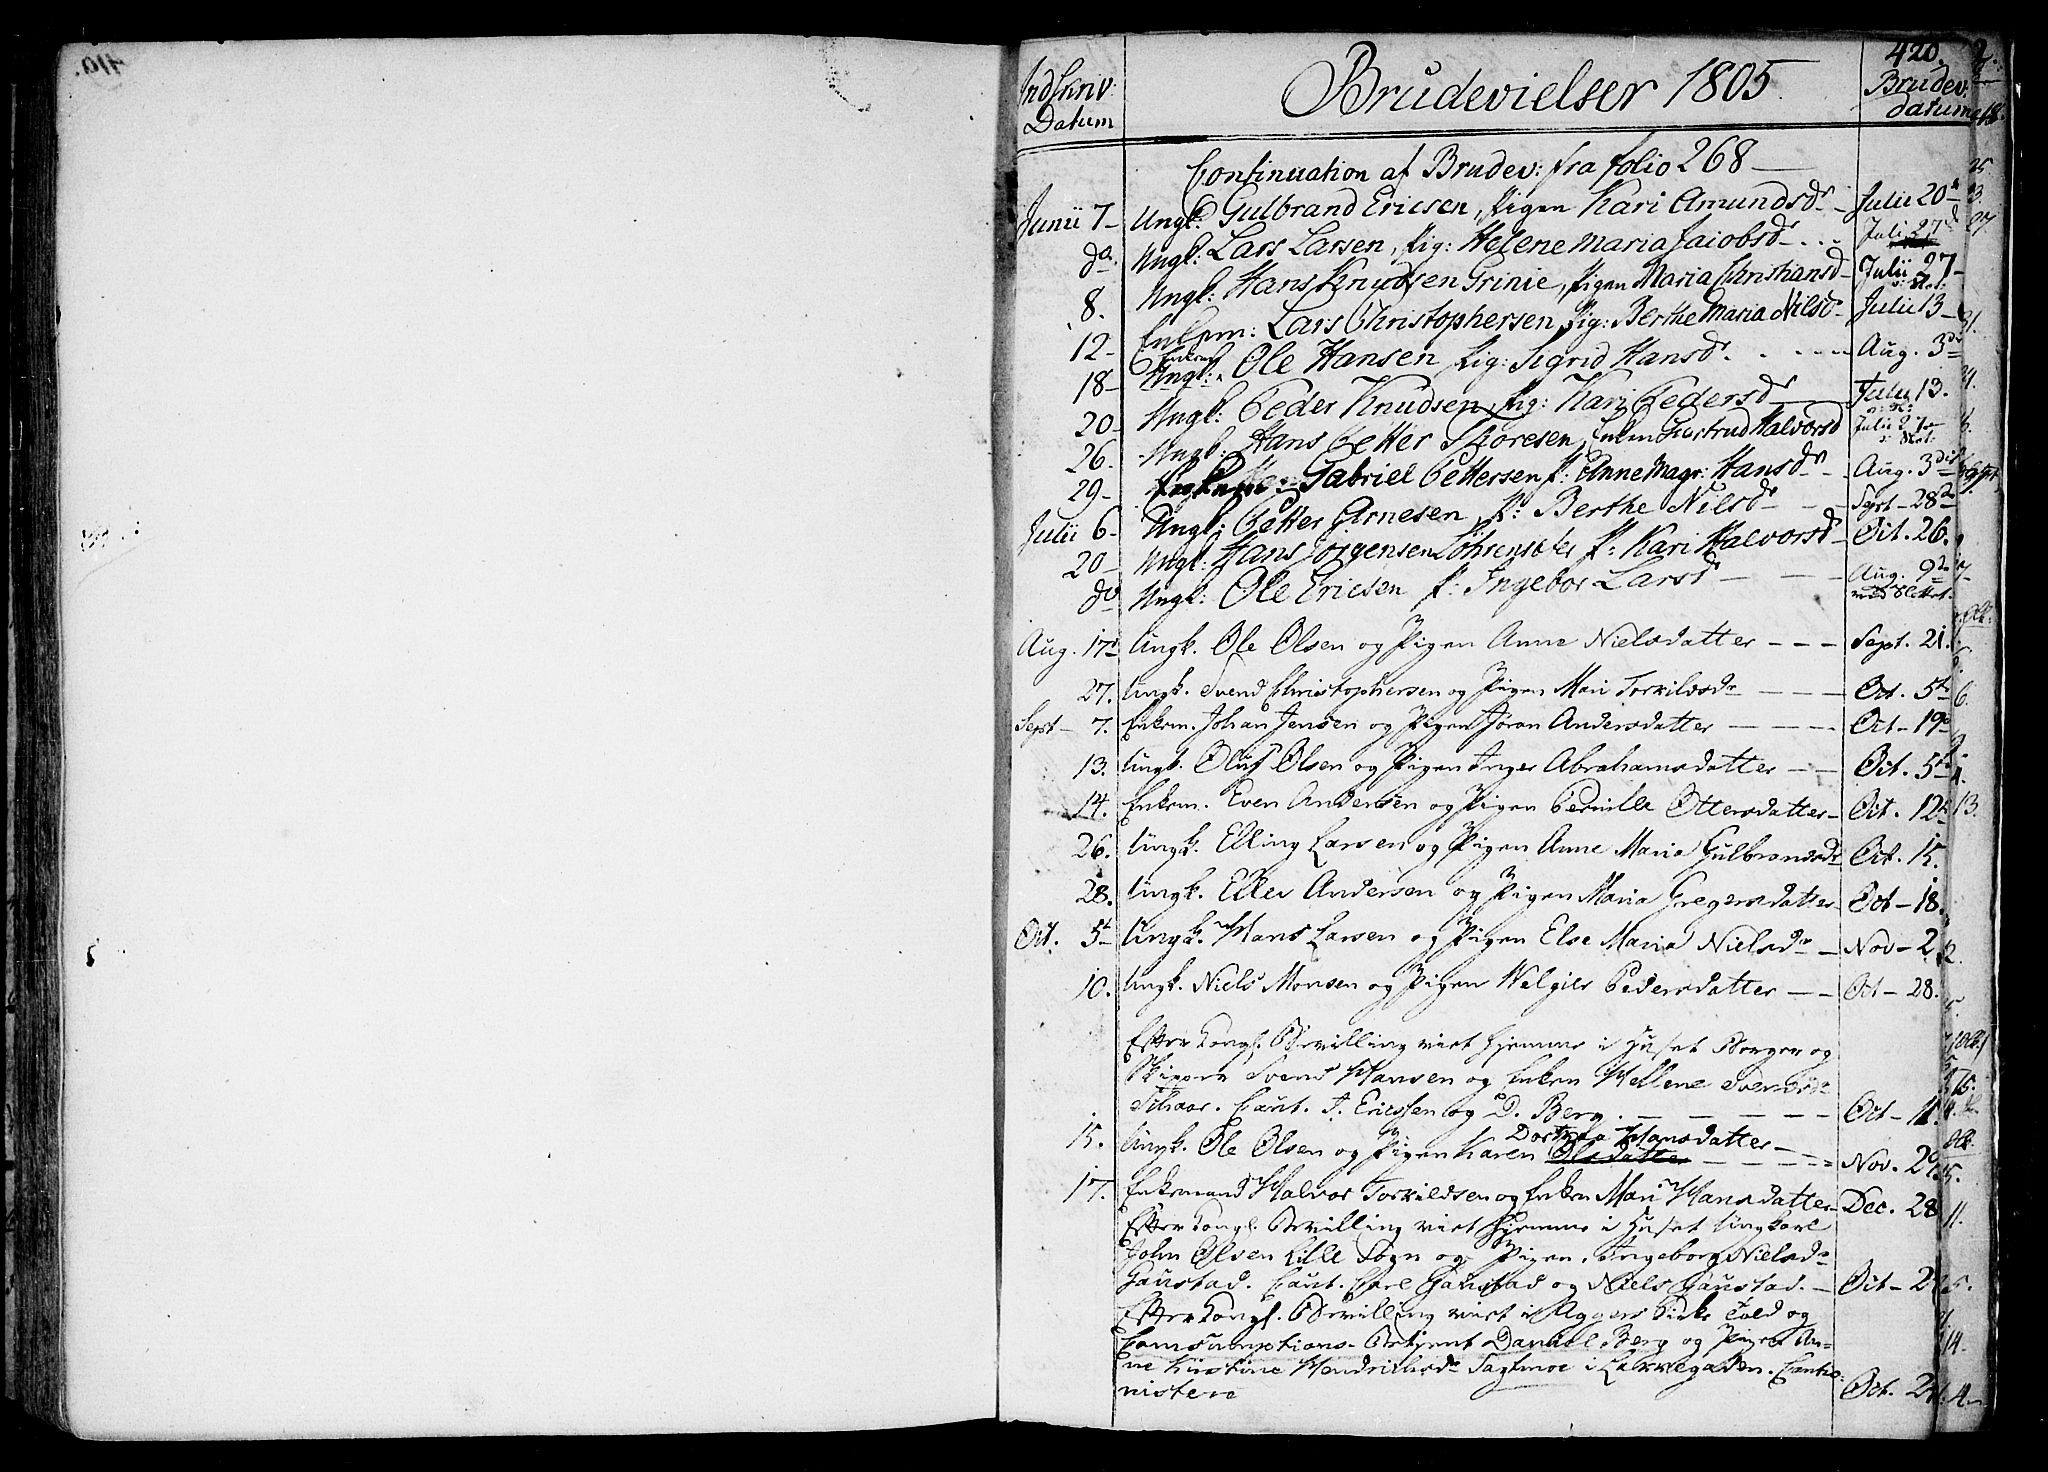 420.
Indskriv: Datum
Brudevielser 1805
Brudev: datum
Continuation af Brudev: fra folio 268 —
Junii 7 – Ungk: Gulbrand Ericsen, Pigen Kari Amundsdr – Julii 20
do. Ungk: Lars Larsen, Pig: Helene Maria Jacobsd – . . Juli 27d
8. Ungk: Hans Knudsen Grinie, Pigen Maria Christiansd – Julii 27 –
12 – Enkem: Lars Christophersen Pig: Berthe Maria Nilsdr – Julii 13 –
18 – Enkem Ungk: Ole Hansen Pig: Sigrid Hansdr . . . . Aug. 3
20 – Ungk: Peder Knudsen, Pig: Kari Pedersdr – Julii 13.
26. Ungk: Hans Petter Thoresen, Enken Giertrud Halvorsd Julii 27
29 – Gabriel Pettersen P: Anne Magr: Hansdr – Aug. 3
Julii 6 – Ungk: Petter Arnesen, P: Berthe Nilsdr – – Sept – 28
20 – Ungk: Hans Jörgensen P: Kari Halvorsd – Oct. 26.
do Ungk: Ole Ericsen P: Ingebor Larsdr – – Aug. 9
Aug. 17 Ungk. Ole Olsen og Pigen Anne Nielsdatter – – – Sept. 21.
27. Ungk. Svend Christophersen og Pigen Mari Torkilsdr – – – Oct. 5
Sept – 7. Enkem. Johan Jensen og Pigen Jöran Andersdatter – – – – Oct – 19
13. Ungk. Oluf Olsen og Pigen Inger Abrahamsdatter – – Oct. 5
14. Enkem. Even Andersen og Pigen Pernille Ottersdatter – Oct. 12
26. Ungk. Elling Larsen og Pigen Anne Maria Gulbransdr Oct. 15.
28. Ungk. Eller Andersen og Pigen Maria Gregersdatter – Oct – 18.
Oct. 5 Ungk. Hans Larsen og Pigen Else Maria Nielsdr – – Nov – 2
10. Ungk. Niels Monsen og Pigen Welgier Pedersdatter – – Oct – 28.
Efter Kongl. Bevilling viet hjemme i Huset Borger og
Skipper Svend Hansen og Enken Hellene Svendsdr
Schaar. Caut. J. Ericssen og D. Berg. – – – – – Oct – 11
15. Ungk. Ole Olsen og Pigen Karen Olsdatter Dorthea Hansdatter – – – – Nov. 29
17. Enkemand Halvor Torkildsen og Enken Mari Hansdatter – Dec. 28
Efter Kongl. Bevilling viet hjemme i Huset Ungkarl
John Olsen Lille Sogn og Pigen Ingeborg Nielsdr
Gaustad. Caut. Carl Gaustad og Niels Gaustad. – Oct – 2
Efter Kongl. Bevilling viet i Aggers Kirke Told og
Consumptions-Betjent Daniel Berg og Pigen An-
ne Kirstine Hendrichsdr i Lakkegaden. Cautio-
nistere Oct. 2